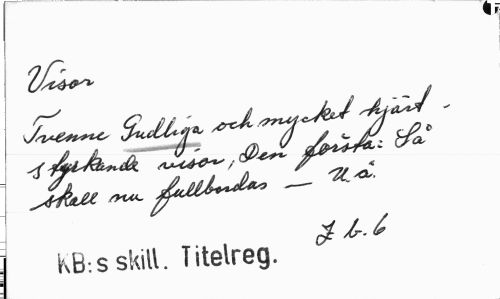 Visor
Tvenne Gudliga och mycket hjärt-
styrkande visor, Den första: Så
skall nu fullbordas — U. å.
Z b. 6
KB:s skill. Titelreg.